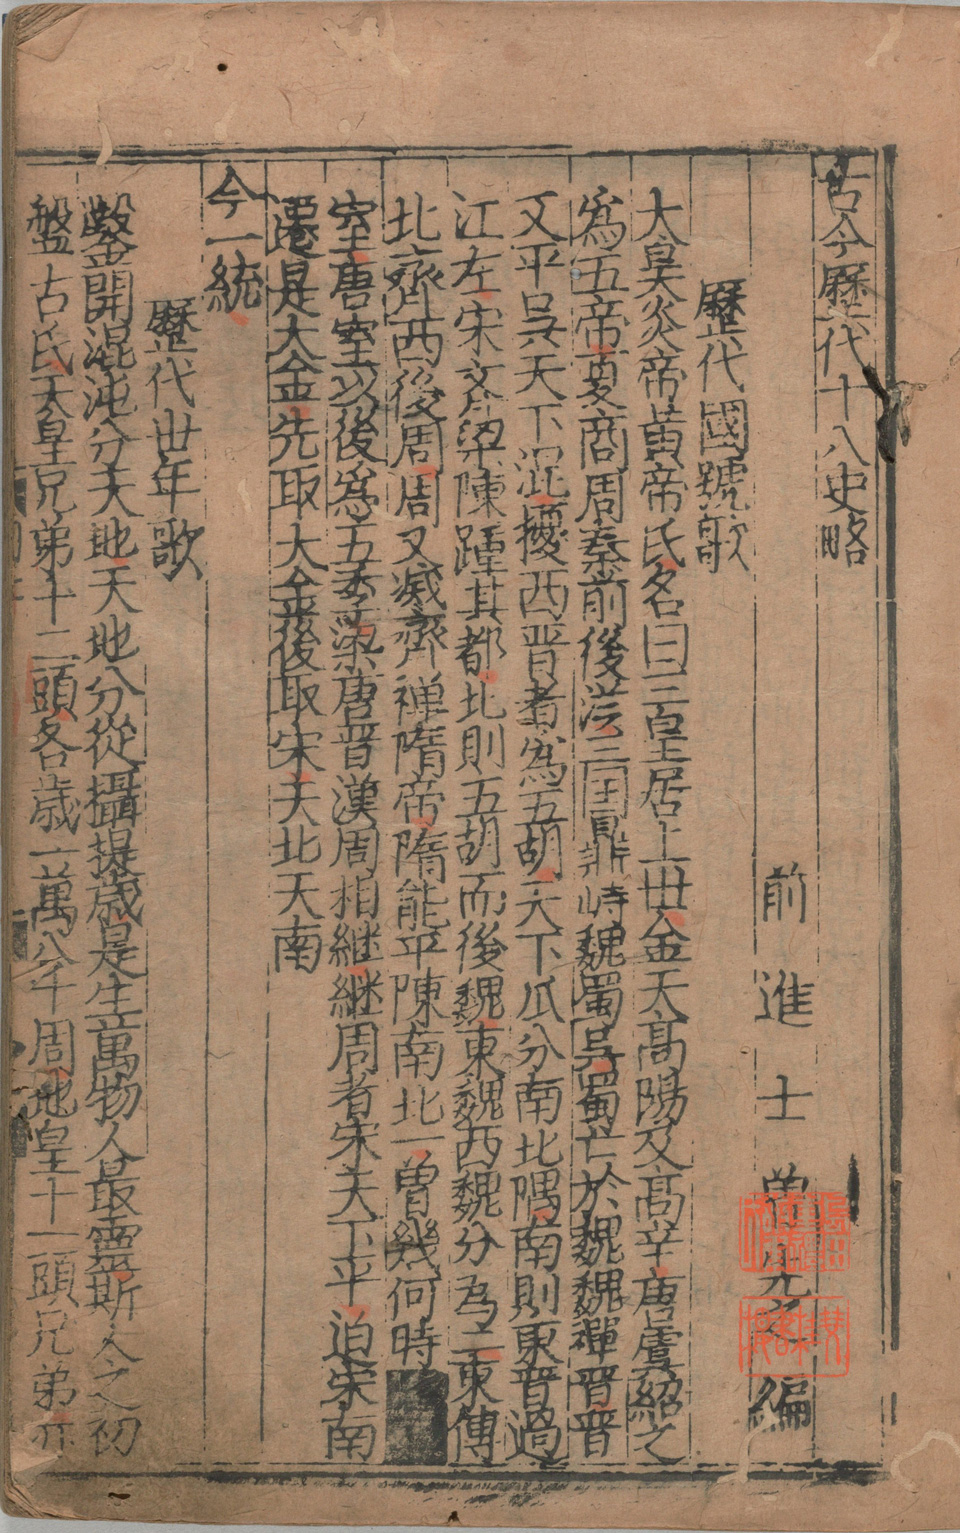 古今歷代十八史略
前進士曾先之編
歷代國號歌
大昊炎帝黃帝氏名曰三皇居上世金天高陽及高辛唐虞紹之
爲五帝夏商周秦前後漢三国鼎峙魏蜀吳蜀亡於魏魏禪晋晋
又平吳天下混擾西晋者爲五胡天下瓜分南北隅南則東晋過
江左宋齐梁陳踵其都北則五胡而後魏東魏西魏分為二東傳
北齊西後周周又滅齊禅隋帝隋能平陳南北一曽幾何時
室唐室以後爲五季梁唐晋漢周相継継周者宋天下平洎宋南
遷是大金先取大金後取宋天北天南
今一統
歷代世年歌
鑿開混沌分天地天地分從攝提歳是生萬物人最靈斯人之初
盤古氏天皇兄弟十二頭各歳一萬八千周地皇十一頭兄弟亦